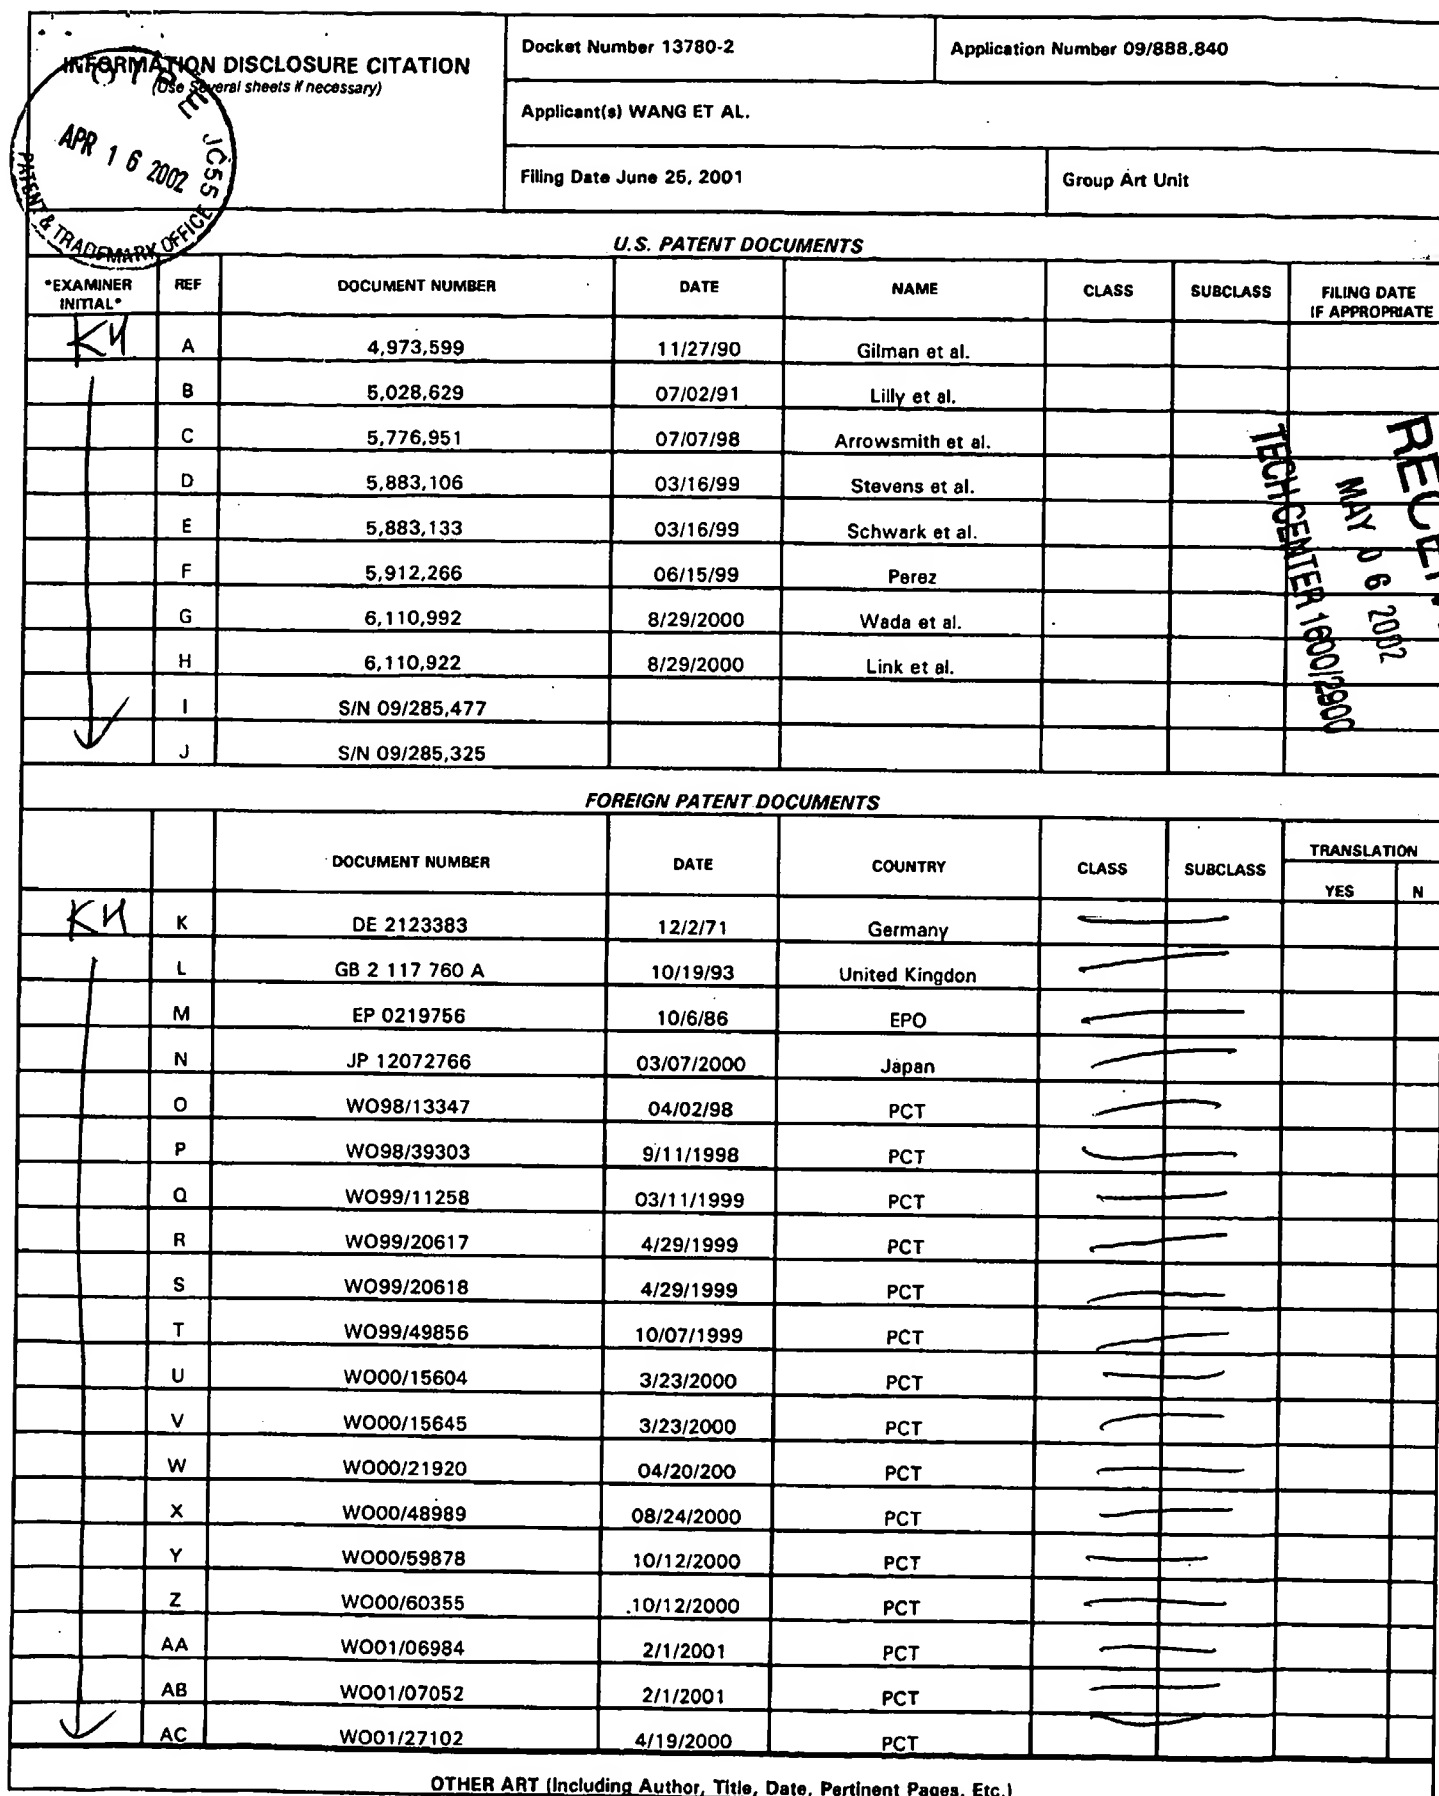 INFORMATION DISCLOSURE CITATION
(Use Several sheets if necessary)
Docket Number 13780-2
Application Number 09/888,840
Applicant(s) WANG ET AL.
Filing Date June 25, 2001
Group Art Unit
O I P E JC55
APR 16 2002
PATENT & TRADEMARK OFFICE
U.S. PATENT DOCUMENTS
*EXAMINER INITIAL* REF DOCUMENT NUMBER DATE NAME CLASS SUBCLASS FILING DATE IF APPROPRIATE
KH A 4,973,599 11/27/90 Gilman et al.
B 5,028,629 07/02/91 Lilly et al.
C 5,776,951 07/07/98 Arrowsmith et al.
D 5,883,106 03/16/99 Stevens et al.
E 5,883,133 03/16/99 Schwark et al.
F 5,912,266 06/15/99 Perez
G 6,110,992 8/29/2000 Wada et al.
H 6,110,922 8/29/2000 Link et al.
I S/N 09/285,477
J S/N 09/285,325
MAY 06 2002
TECH CENTER 1600/2900
FOREIGN PATENT DOCUMENTS
DOCUMENT NUMBER DATE COUNTRY CLASS SUBCLASS TRANSLATION
YES N
KH K DE 2123383 12/2/71 Germany
L GB 2 117 760 A 10/19/93 United Kingdon
M EP 0219756 10/6/86 EPO
N JP 12072766 03/07/2000 Japan
O WO98/13347 04/02/98 PCT
P WO98/39303 9/11/1998 PCT
Q WO99/11258 03/11/1999 PCT
R WO99/20617 4/29/1999 PCT
S WO99/20618 4/29/1999 PCT
T WO99/49856 10/07/1999 PCT
U WO00/15604 3/23/2000 PCT
V WO00/15645 3/23/2000 PCT
W WO00/21920 04/20/200 PCT
X WO00/48989 08/24/2000 PCT
Y WO00/59878 10/12/2000 PCT
Z WO00/60355 10/12/2000 PCT
AA WO01/06984 2/1/2001 PCT
AB WO01/07052 2/1/2001 PCT
AC WO01/27102 4/19/2000 PCT
OTHER ART (Including Author, Title, Date, Pertinent Pages, Etc.)